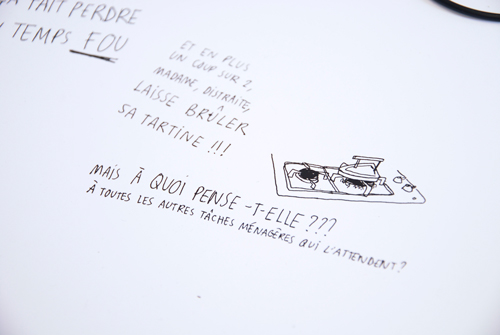 FAIT PERDRE
TEMPS FOU
ET EN PLUS
UN COUP SUR 2,
MADAME, DISTRAITE,
LAISSE BRÛLER
SA TARTINE !!!
MAIS À QUOI PENSE-T-ELLE ???
À TOUTES LES AUTRES TÂCHES MÉNAGÈRES QUI L'ATTENDENT ?